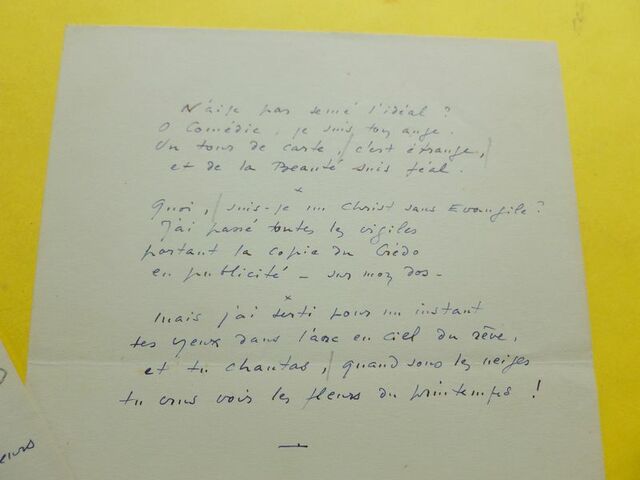 N'ai-je pas semé l'idéal ?
O Comédie, je suis ton ange.
Un tour de carte, c'est étrange,
et de la Beauté suis féal.
x
Quoi, suis-je un Christ sans Evangile ?
J'ai passé toutes les vigiles
portant la copie du Crédo
en publicité - sur mon dos -
x
Mais j'ai serti pour un instant
tes yeux dans l'arc en ciel du rêve,
et tu chantas, quand sous les neiges
tu crus voir les fleurs du printemps !